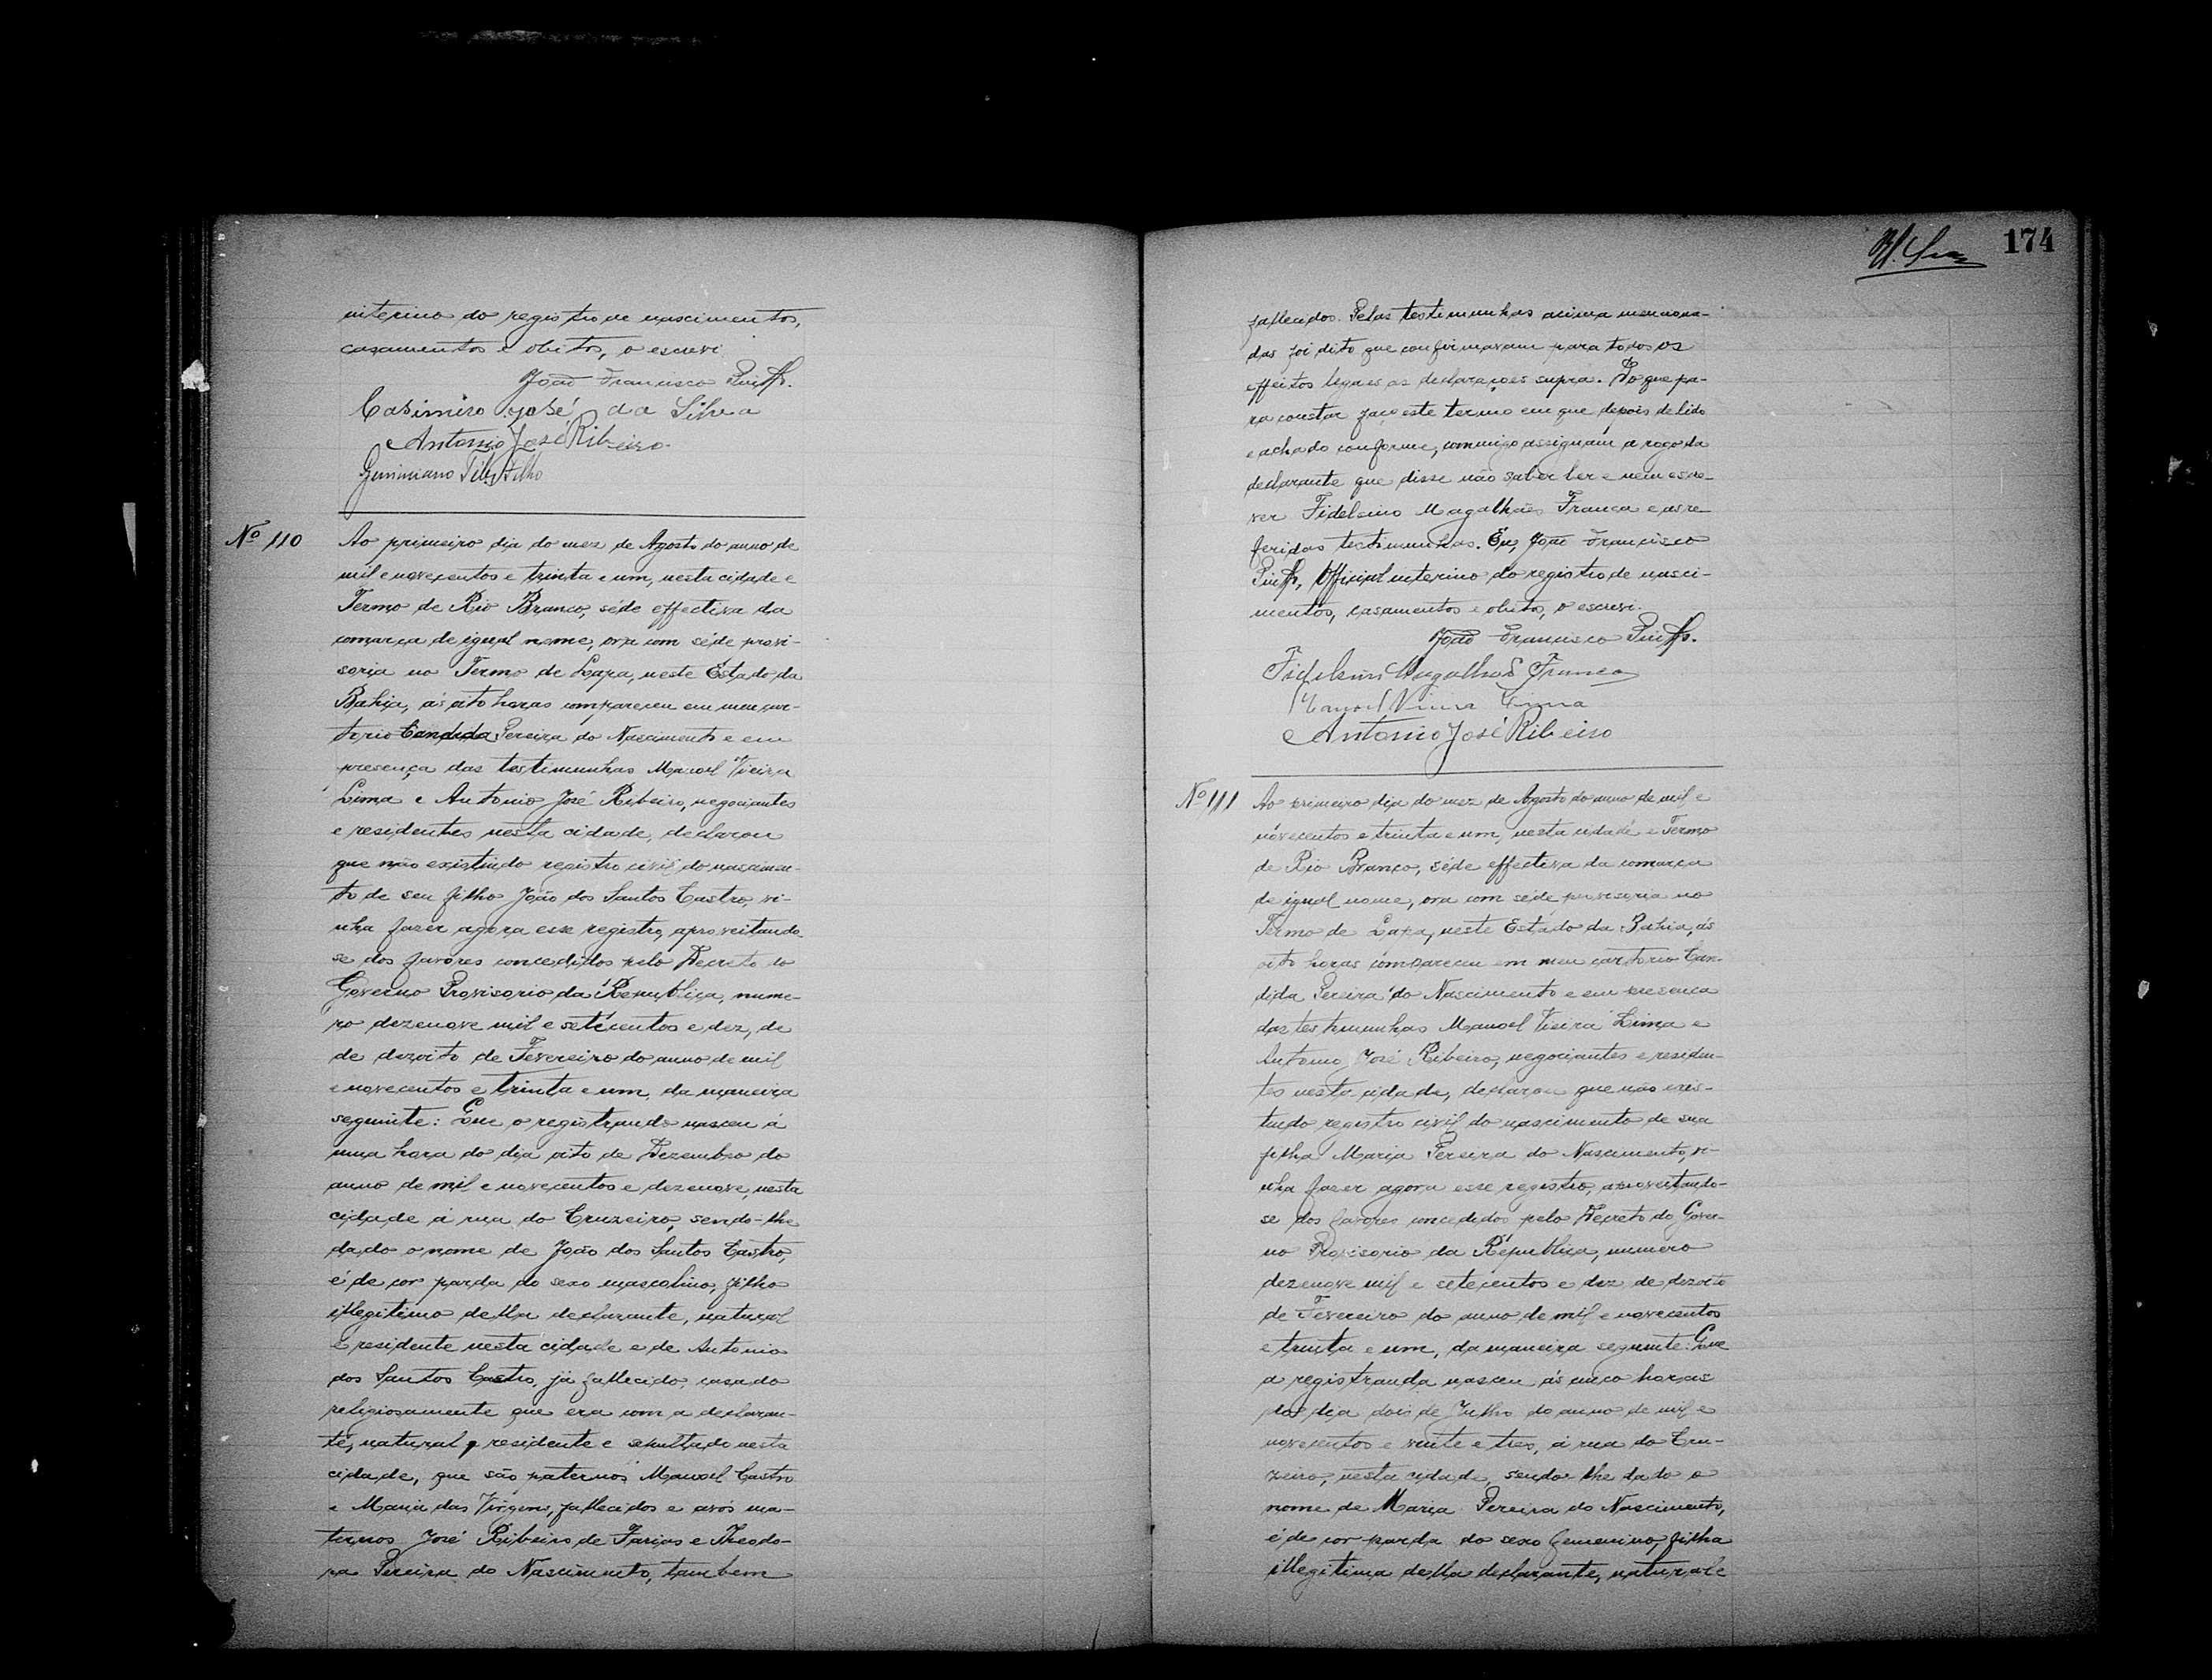 interino do registro de nascimentos,
casamentos e obitos, o escrevi
João Francisco
Casimiro José da Silva
Antonio José Ribeiro
Geminiano Filho
Nº 110
Ao primeiro dia do mez de Agosto do anno de
mil e novecentos e trinta e um, nesta cidade e
Termo de Rio Branco, séde effectiva da
comarca de igual nome, ora com séde provi-
soria no Termo de Lapa, neste Estado da
Bahia, ás oito horas compareceu em meu car-
torio Candida Pereira do Nascimento e em
presença das testimunhas Manoel Vieira
Lima e Antonio José Ribeiro, negociantes
e residentes nesta cidade, declarou
que não existindo registro civil do nascimen-
to de seu filho João dos Santos Castro, vi-
nha fazer agora esse registro, aproveitando-
se dos favores concedidos pelo Decreto do
Governo Provisorio da Republica, nume-
ro dezenove mil e setecentos e dez, de
de dezoito de Fevereiro do anno de mil
e novecentos e trinta e um, da maneira
seguinte: Que o registrando nasceu á
uma hora do dia oito de Dezembro do
anno de mil e novecentos e dezenove, nesta
cidade á rua do Cruzeiro, sendo-lhe
dado o nome de João dos Santos Castro,
é de cor parda do sexo masculino, filho
illegitimo della declarante, natural
e residente nesta cidade e de Antonio
dos Santos Castro, já fallecido, casado
religiosamente que era com a declaran-
te, natural e residente e sepultado nesta
cidade, que são paternos Manoel Castro
e Maria das Virgens, fallecidos e avós ma-
ternos José Ribeiro de Farias e Theodo-
ra Pereira do Nascimento, tambem
174
fallecidos. Pelas testimunhas acima menciona-
das foi dito que confirmavam para todos os
effeitos legaes as declarações supra. Do que pa-
ra constar faço este termo em que depois de lido
e achado conforme, commigo assignam a rogo da
declarante que disse não saber ler e nem escre-
ver Fidelcino Magalhães Franca e as re-
feridas testimunhas. Eu, João Francisco
Official interino do registro de nasci-
mentos, casamentos e obitos, o escrevi.
João Francisco
Fidelcino Magalhães Franca
Manoel Vieira Lima
Antonio José Ribeiro
Nº 111
Ao primeiro dia do mez de Agosto do anno de mil e
novecentos e trinta e um, nesta cidade e Termo
de Rio Branco, séde effectiva da comarca
de igual nome, ora com séde provisoria no
Termo de Lapa, neste Estado da Bahia, ás
oito horas compareceu em meu cartorio Can-
dida Pereira do Nascimento e em presença
das testimunhas Manoel Vieira Lima e
Antonio José Ribeiro, negociantes e residen-
tes nesta cidade, declarou que não exis-
tindo registro civil do nascimento de sua
filha Maria Pereira do Nascimento, vi-
nha fazer agora esse registro, aproveitando-
se dos favores concedidos pelo Decreto do Gover-
no Provisorio da Republica, numero
dezenove mil e setecentos e dez de dezoito
de Fevereiro do anno de mil e novecentos
e trinta e um, da maneira seguinte: Que
a registranda nasceu ás cinco horas
do dia dois de Julho do anno de mil e
novecentos e vinte e tres, á rua do Cru-
zeiro, nesta cidade, sendo-lhe dado o
nome de Maria Pereira do Nascimento,
é de cor parda do sexo femenino, filha
illegitima della declarante, natural e